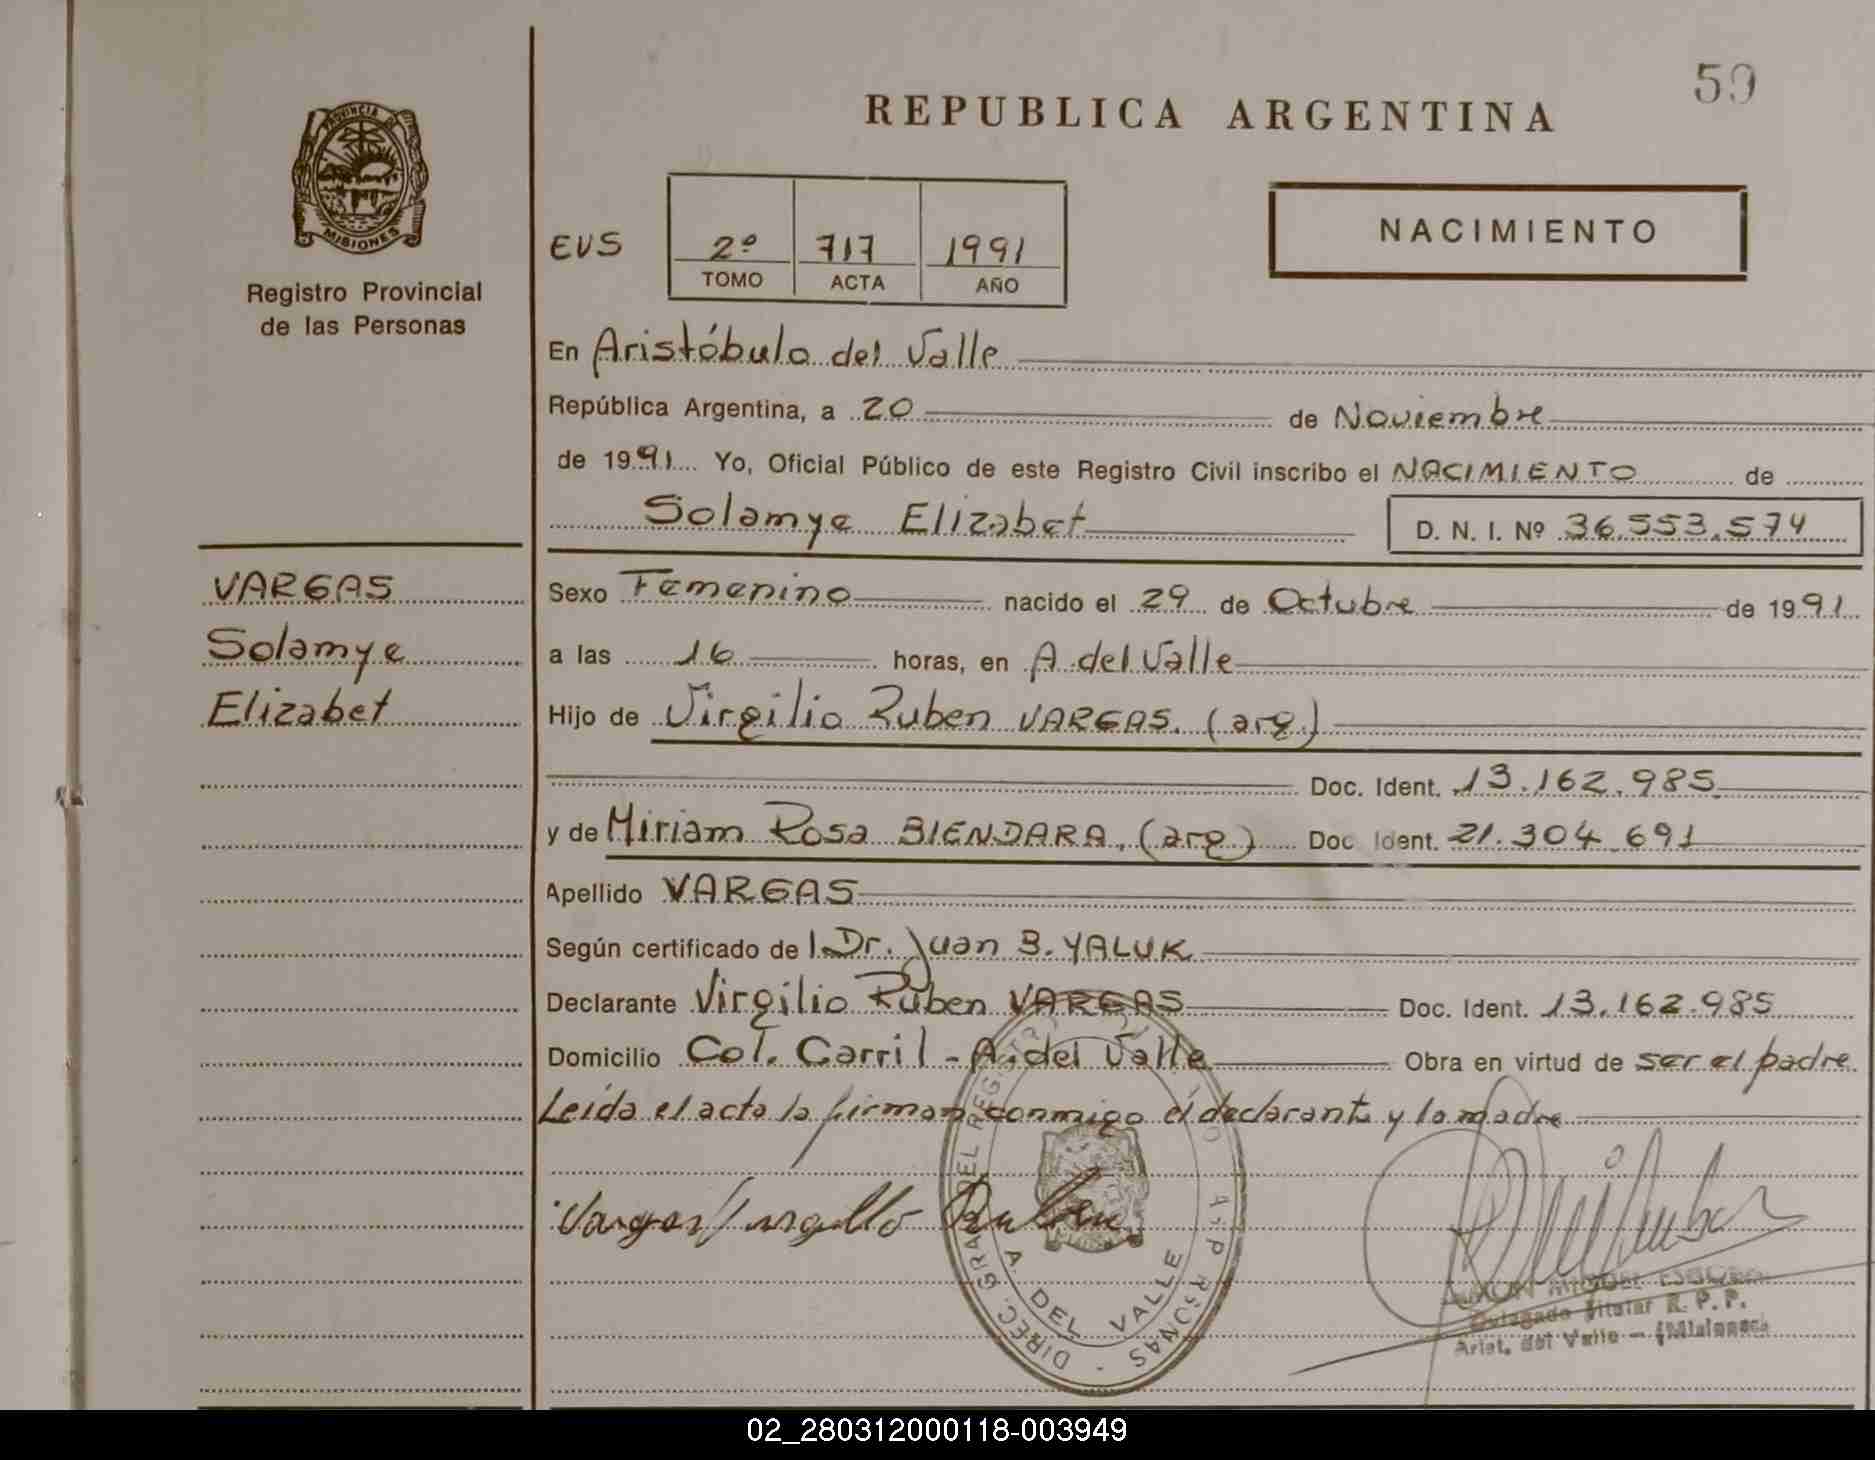 59
REPUBLICA ARGENTINA
PROVINCIA DE
MISIONES
Registro Provincial
de las Personas
EVS
2º 717 1991
TOMO ACTA AÑO
NACIMIENTO
En Aristóbulo del Valle
República Argentina, a 20 de Noviembre
de 1991 Yo, Oficial Público de este Registro Civil inscribo el NACIMIENTO de
Solamye Elizabet D. N. I. Nº 36.553.574
VARGAS
Solamye
Elizabet
Sexo Femenino nacido el 29 de Octubre de 1991
a las 16 horas, en A. del Valle
Hijo de Virgilio Ruben VARGAS. (arg.)
Doc. Ident. 13.162.985
y de Miriam Rosa BIENDARA, (arg) Doc Ident. 21.304.691
Apellido VARGAS
Según certificado de l Dr. Juan B. YALUK
Declarante Virgilio Ruben VARGAS Doc. Ident. 13.162.985
Domicilio Col. Carril - A. del Valle Obra en virtud de ser el padre
Leída el acta la firman conmigo el declarante y la madre
Vargas Virgilio Ruben
DIREC GRAL DEL REGISTRO
A DEL VALLE
MIGUEL
Delegado Titular R. P. P.
Arist. del Valle - (Misiones)
02_280312000118-003949